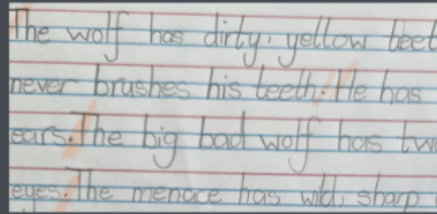 The wolf has dirty, yellow teet
never brushes his teeth. He has
ears. The big bad wolf has tw
eyes. The menace has wild, sharp